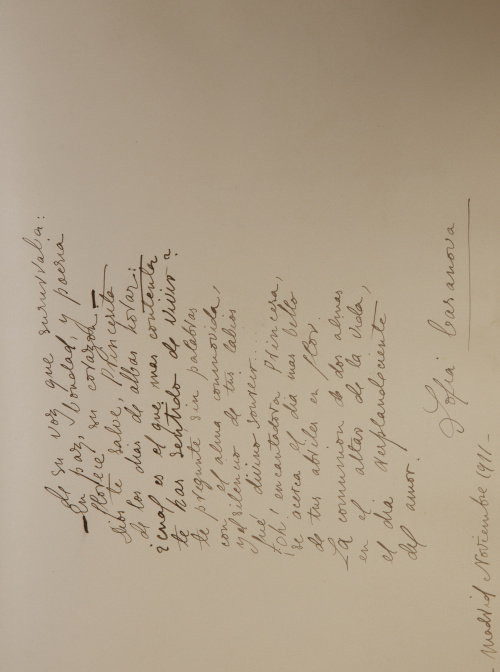 De su voz que susurraba:
En paz, bondad, y poesia
florece su corazon —
Dios te salve, Princesita
de los dias de albas horas:
¿cual es el que mas contenta
te has sentido de vivir?
te pregunté sin palabras
con el alma conmovida,
y el silencio de tus labios
fué divino sonreir...
¡oh, encantadora Princesa,
se acerca el dia mas bello
de tus abriles en flor.
La comunion de dos almas
en el altar de la vida,
el dia resplandeciente
del amor.
Sofia Casanova
Madrid Noviembre 1911-